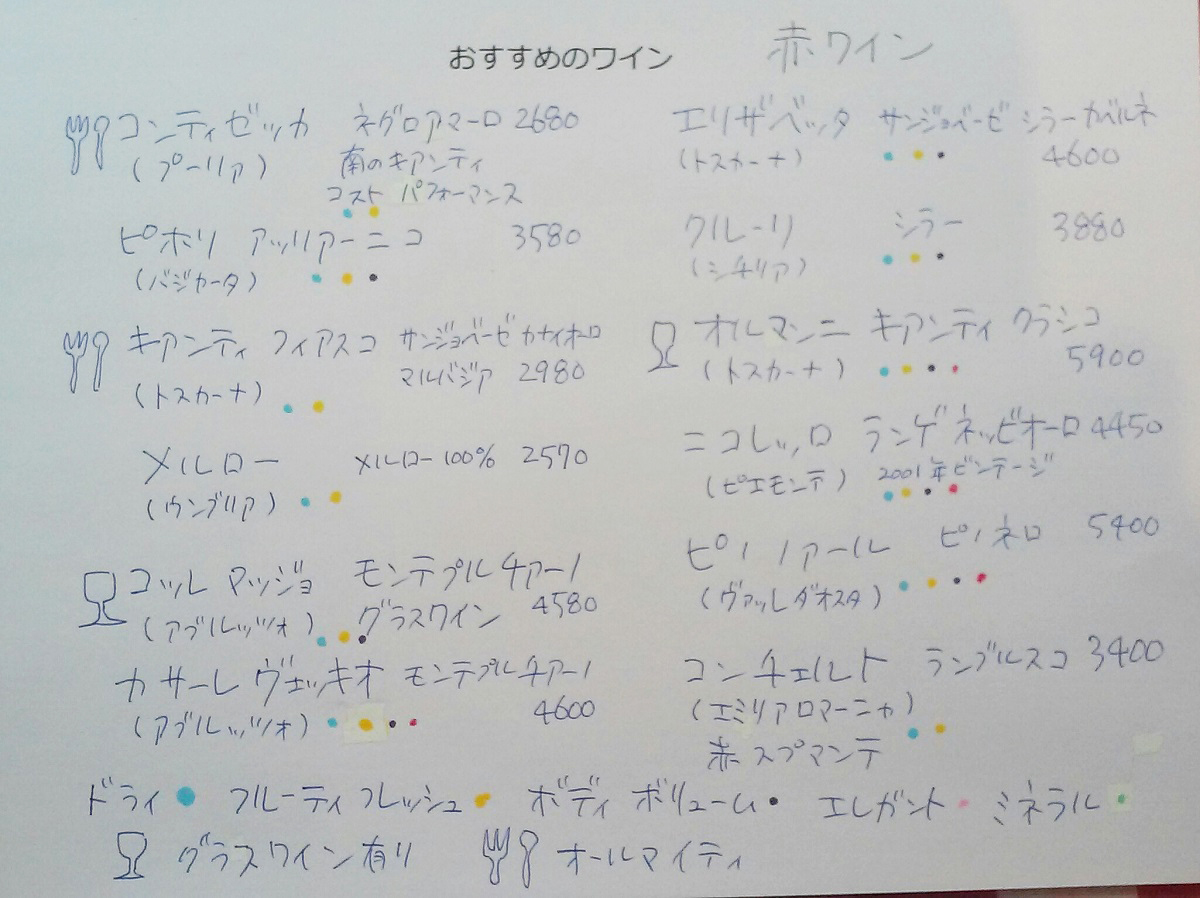 おすすめのワイン 赤ワイン
コンティゼッカ ネグロアマーロ 2680
(プーリア) 南のキアンティ
コスト パフォーマンス
ピポリ アッリアーニコ 3580
(バジカータ)
キアンティ フィアスコ サンジョベーゼ カナイオーロ
(トスカーナ) マルバジア 2980
メルロー メルロー100% 2570
(ウンブリア)
コッレ マッジョ モンテプルチアーノ
(アブルッツォ) グラスワイン 4580
カサーレ ヴェッキオ モンテプルチアーノ
(アブルッツォ) 4600
エリザベッタ サンジョベーゼ シラー カベルネ
(トスカーナ) 4600
クルーリ シラー 3880
(シチリア)
オルマンニ キアンティ クラシコ
(トスカーナ) 5900
ニコレッロ ランゲ ネッビオーロ 4450
(ピエモンテ) 2001年ビンテージ
ピノ ノアール ピノネロ 5400
(ヴァッレダオスタ)
コンチェルト ランブルスコ 3400
(エミリアロマーニャ)
赤 スプマンテ
ドライ フルーティ フレッシュ ボディ ボリューム エレガント ミネラル
グラスワイン有り オールマイティ